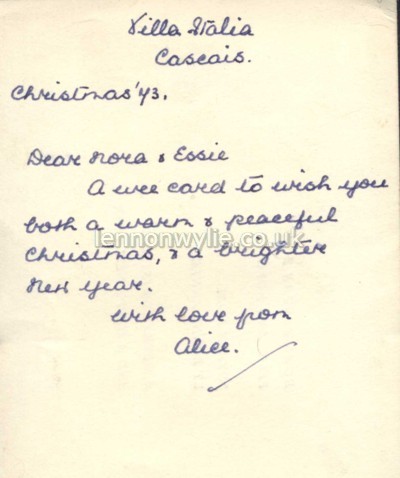 Villa Italia
Cascais.
Christmas '43.
Dear Nora & Essie
A wee card to wish you
both a warm & peaceful
lennonwylie.co.uk
Christmas, & a brighter
New year.
with love from
Alice.